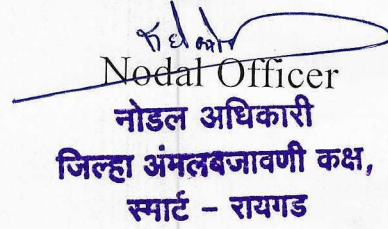 Nodal Officer
नोडल अधिकारी
जिल्हा अंमलबजावणी कक्ष,
स्मार्ट – रायगड